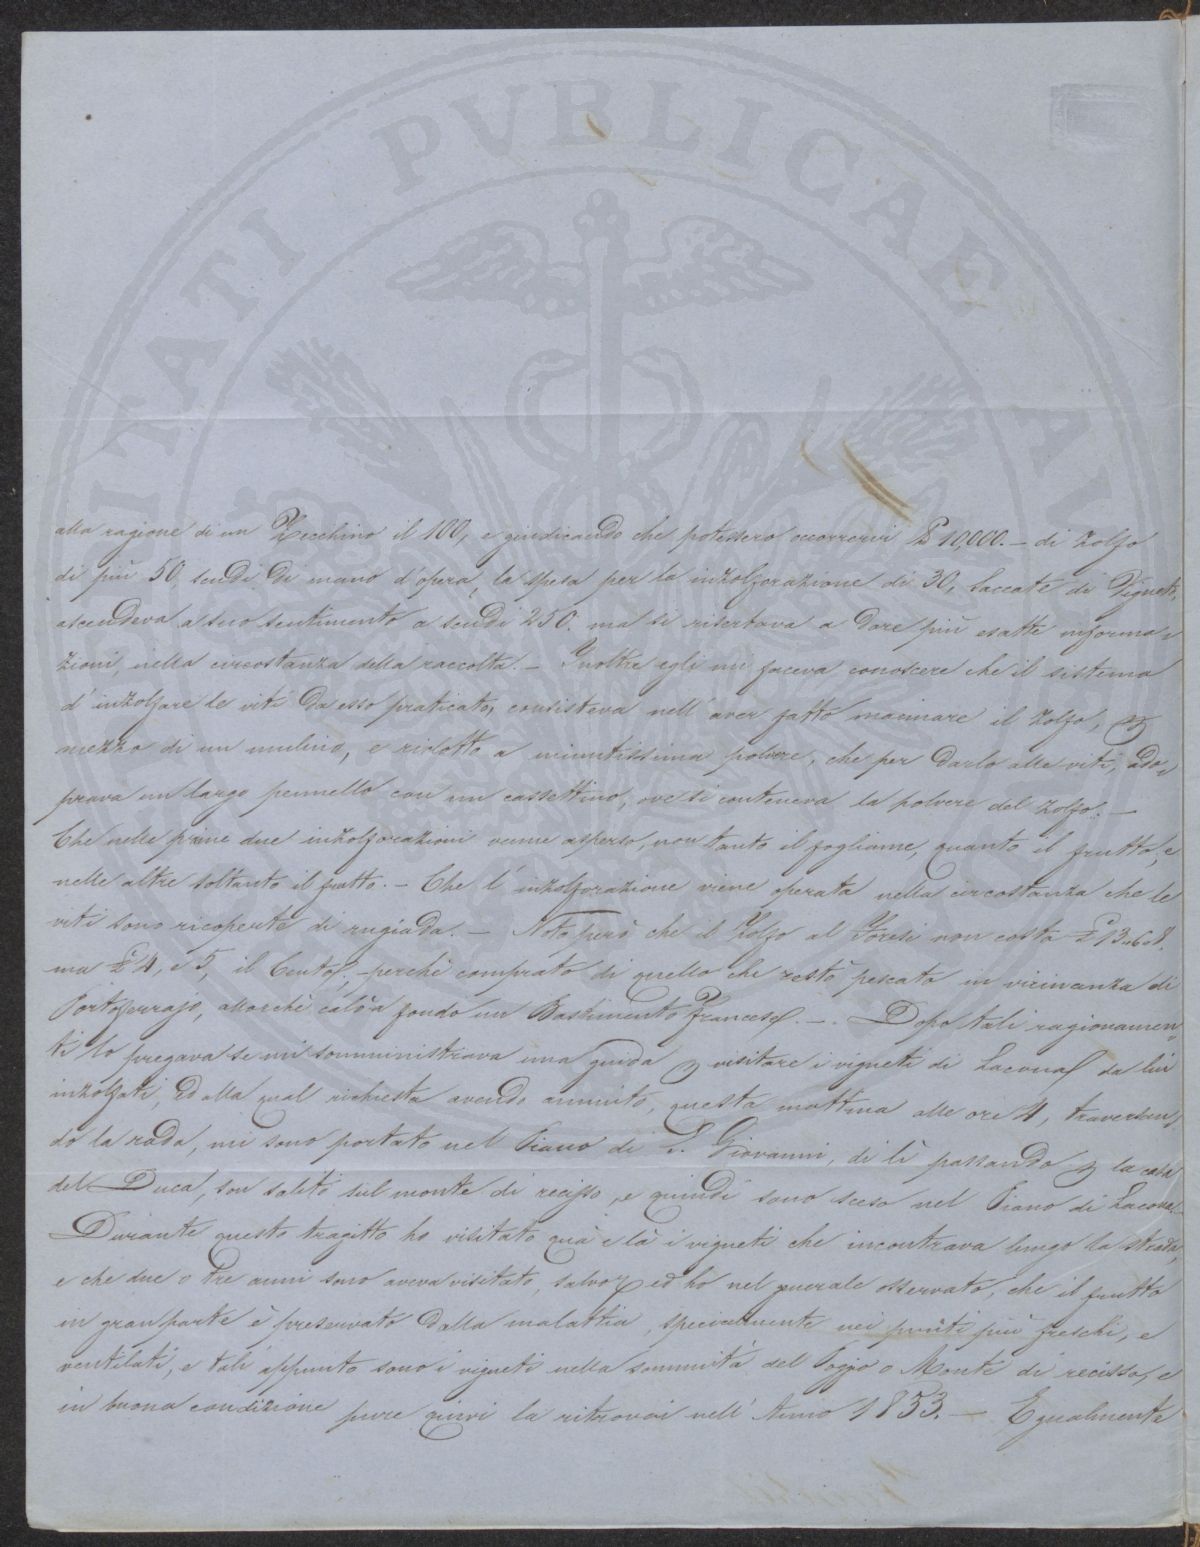 alla ragione di un Zecchino il 100, e giudicando che potessero occorrervi ℔ 10,000.— di zolfo
di più 50, scudi di mano d'opera, la spesa per la inzolforazione di 30, saccate di Vigneti,
ascendeva a suo sentimento a scudi 250. ma si risertava a dare più esatte informa=
zioni, nella circostanza della raccolta.— Inoltre egli mi faceva conoscere che il sistema
d'inzolfare le viti da esso praticato, consisteva nell'aver fatto macinare il zolfo, p
mezzo di un mulino, e ridotto a minutissima polvere, che per darlo alle viti, ado=
prava un largo pennello con un cassettino, ove si conteneva la polvere del zolfo.—
Che nelle prime due inzolforazioni venne asperso, non tanto il fogliame, quanto il frutto, e
nelle altre soltanto il frutto.— Che l'inzolforazione viene operata nella circostanza che le
viti sono ricoperte di rugiada.— Noto però che il Zolfo al Foresi non costa £ 13.6.8.
ma £ 4, e 5, il Cento, perchè comprato di quello che restò pescato in vicinanza di
Portoferrajo, allorchè calò a fondo un Bastimento Francese.—. Dopo tali ragionamen=
ti lo pregava se mi somministrava una guida p visitare i vigneti di Lacona da lui
inzolfati, ed alla qual richiesta avendo annuito, questa mattina alle ore 4, traversan=
do la rada, mi sono portato nel Piano di S. Giovanni, di lì passando p la casa
del Duca, son salito sul monte di recisso, e quindi sono sceso nel Piano di Lacona.—
Durante questo tragitto ho visitato quà e là i vigneti che incontrava lungo la strada,
e che due o tre anni sono aveva visitato, ed ho nel generale osservato, che il frutto
in gran parte è preservato dalla malattia, specialmente nei punti più freschi, e
ventilati, e tali appunto sono i vigneti nella sommità del Poggio o Monte di recisso, e
in buona condizione pure quivi la ritrovai nell'Anno 1853.— Egualmente
PVBLICAE